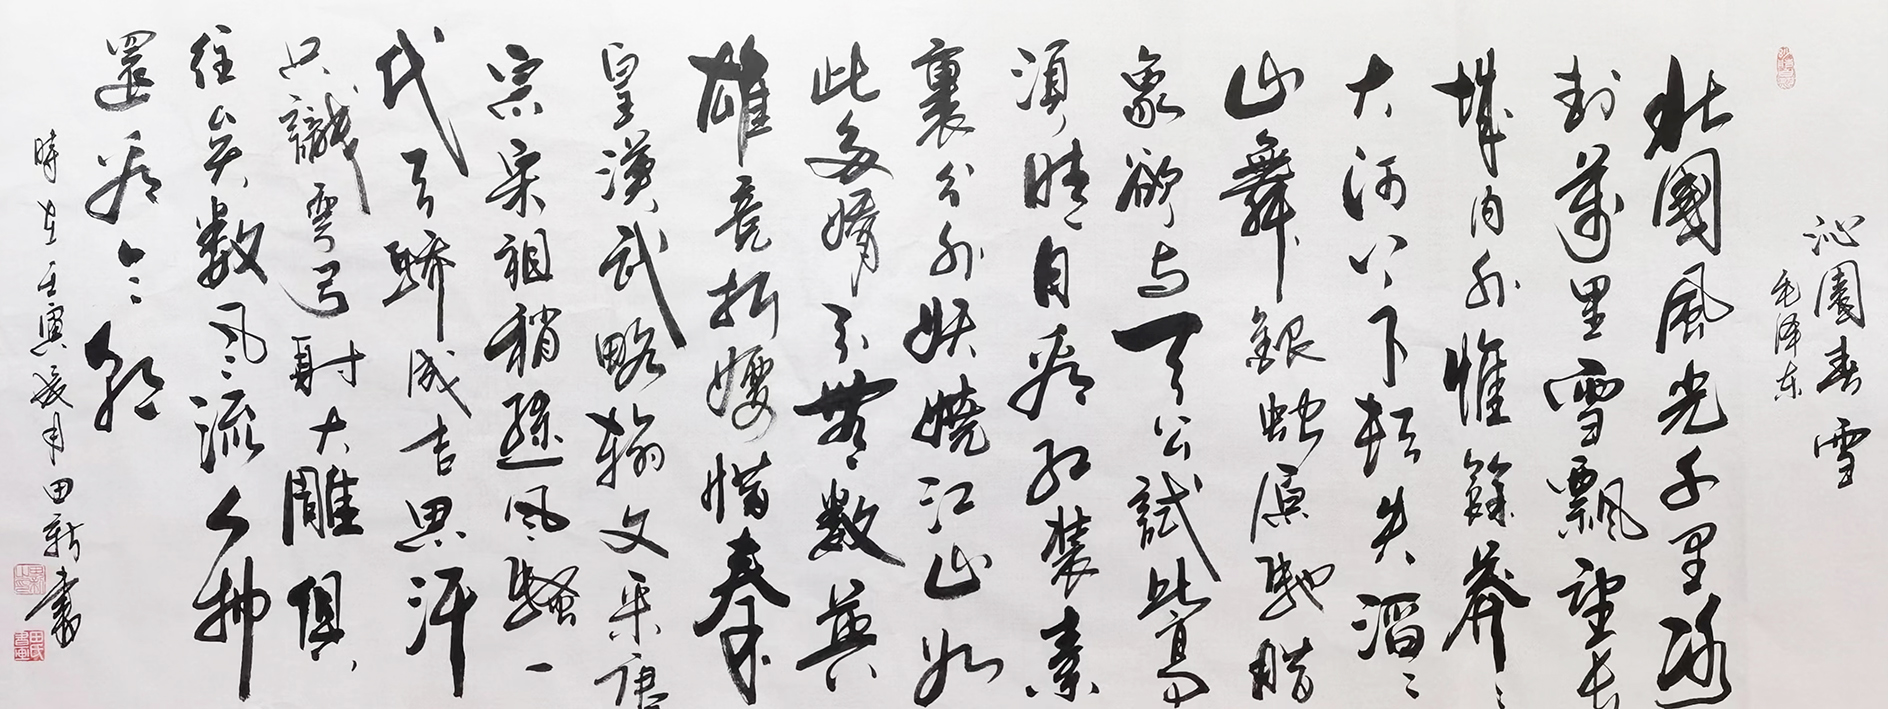 沁園春雪
毛泽东
北國風光千里冰
封萬里雪飄望長
城内外惟餘莽〻
大河上下頓失滔〻
山舞銀蛇原馳腊
象欲与天公試比高
須晴日看红裝素
裹分外妖嬈江山如
此多嬌引無數英
雄竞折腰惜秦
皇漢武略輸文采唐
宗宋祖稍遜風騷一
代天驕成吉思汗
只識彎弓射大雕俱
往矣數風流人物
還看今朝
時在壬寅月田新書